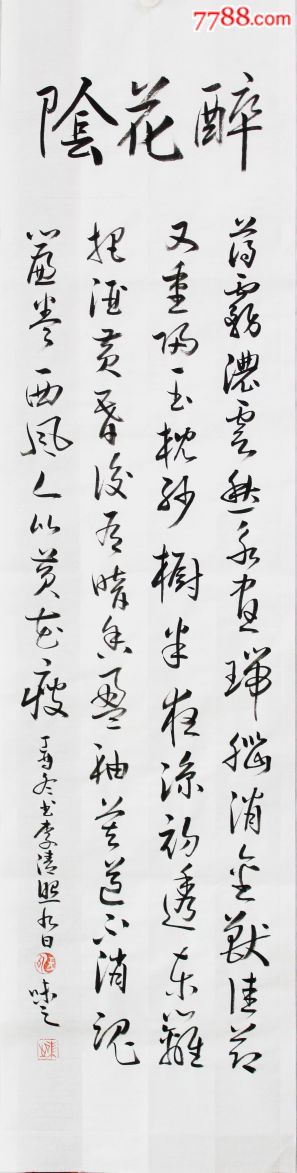 7788.com
醉花陰
薄霧濃雲愁永晝瑞腦消金獸佳節
又重陽玉枕紗橱半夜涼初透東籬
把酒黃昏後有暗香盈袖莫道不消魂
簾卷西風人似黃花瘦
冬书李清照九日